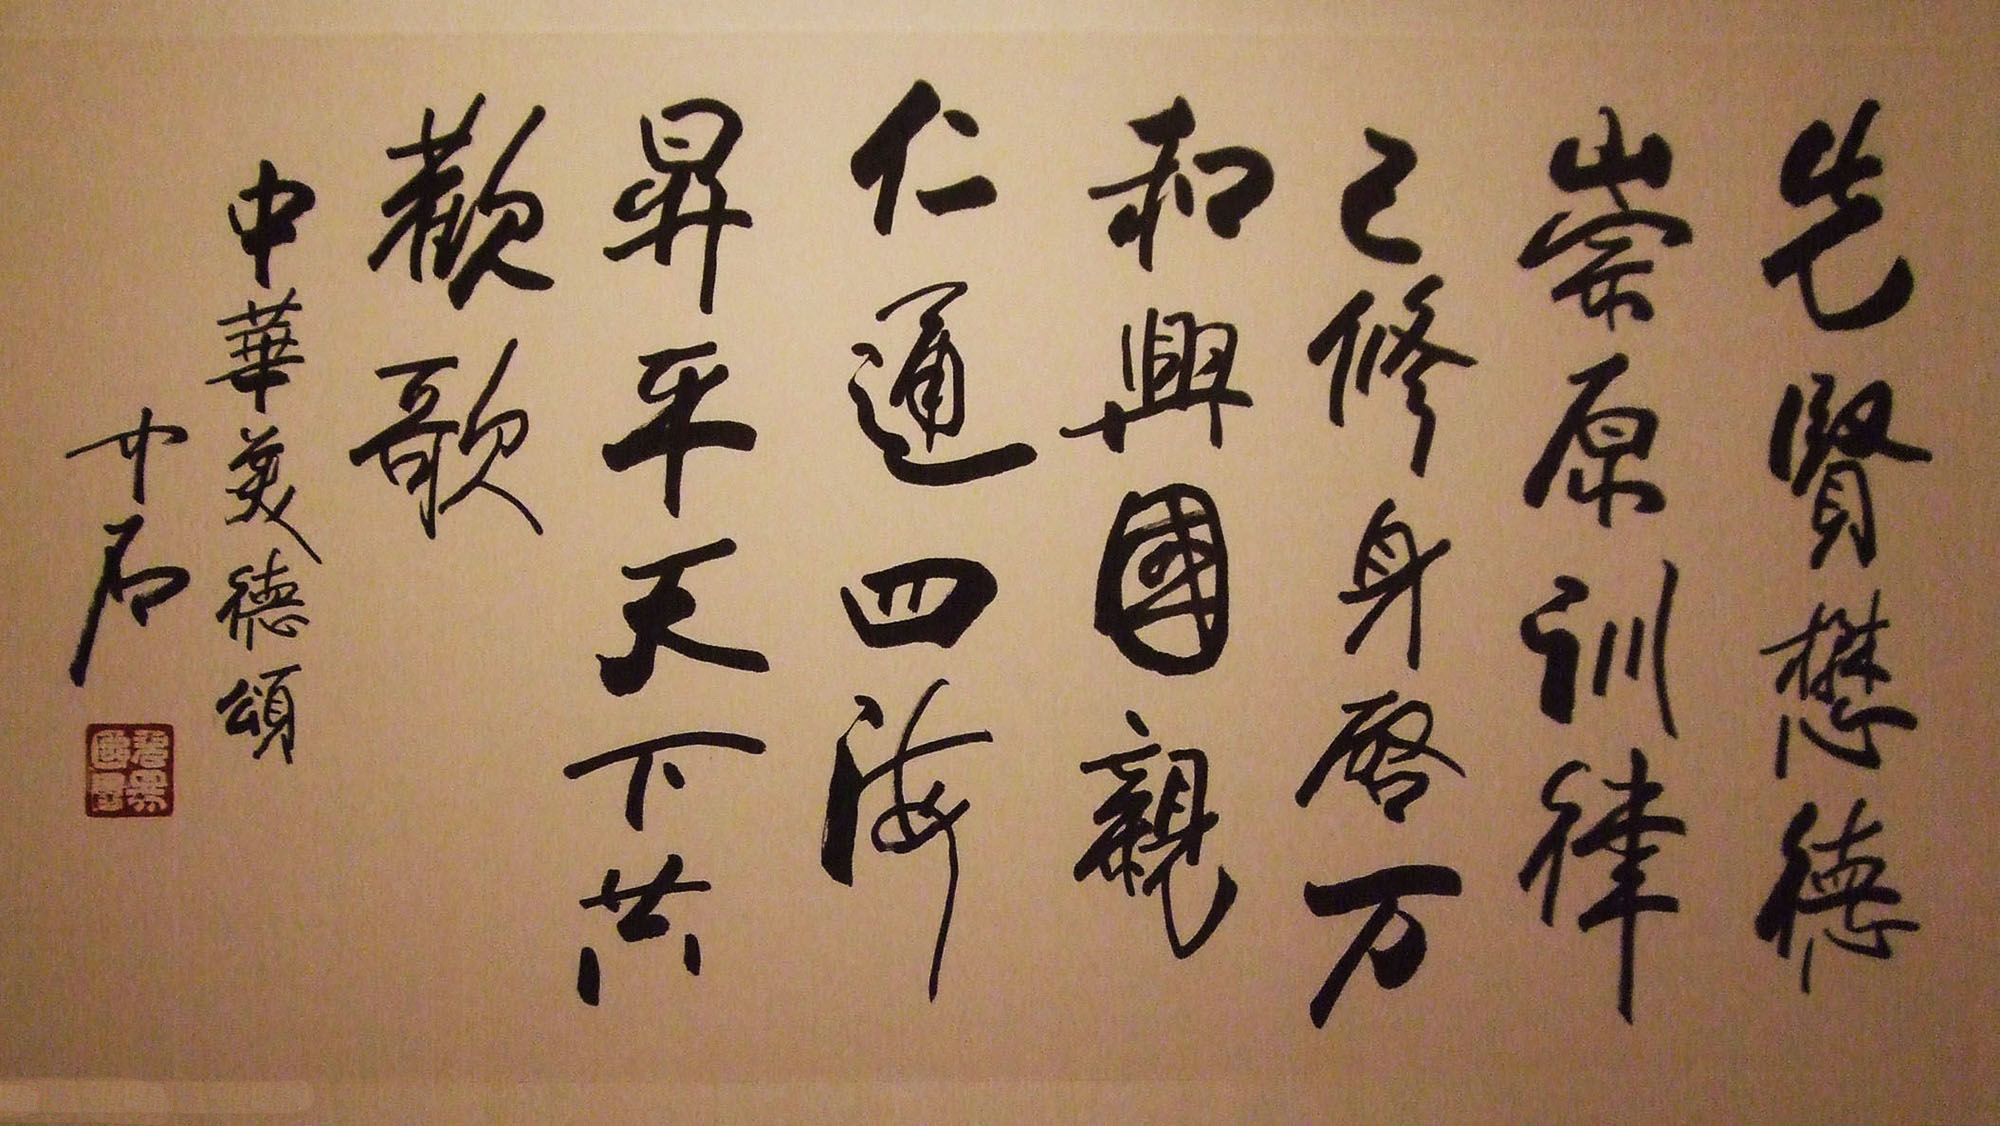 先賢懋德
崇原訓律
己修身啓万
和興國親
仁通四海
昇平天下共
歡歌
中華美德頌